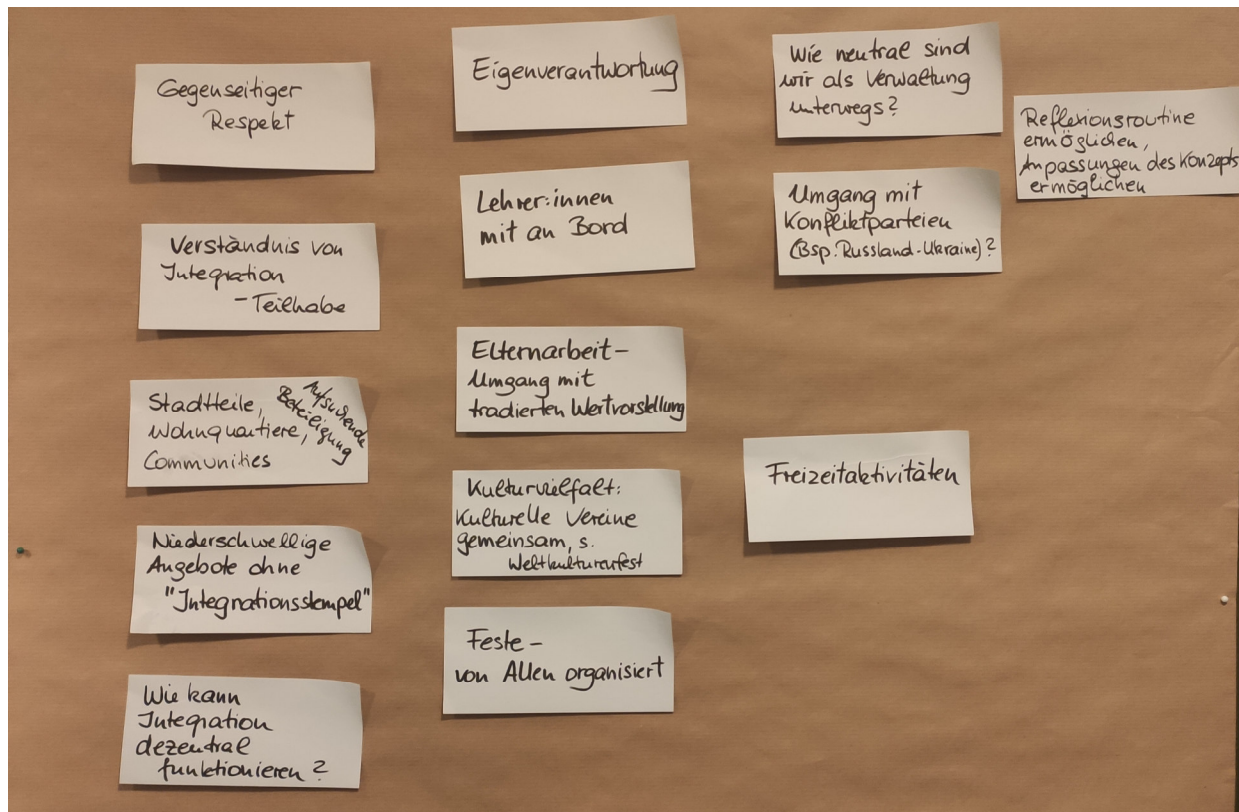 Gegenseitiger
Respekt
Verständnis von
Integration
- Teilhabe
Stadtteile,
Wohnquartiere,
Communities
Aufsuchende
Beteiligung
Niederschwellige
Angebote ohne
"Integrationsstempel"
Wie kann
Integration
dezentral
funktionieren?
Eigenverantwortung
Lehrer:innen
mit an Bord
Elternarbeit -
Umgang mit
tradierten Wertvorstellung
Kulturvielfalt:
Kulturelle Vereine
gemeinsam, s.
Weltkulturenfest
Feste -
von Allen organisiert
Wie neutral sind
wir als Verwaltung
unterwegs?
Umgang mit
Konfliktparteien
(Bsp. Russland-Ukraine)?
Freizeitaktivitäten
Reflexionsroutine
ermöglichen,
Anpassungen des Konzepts
ermöglichen